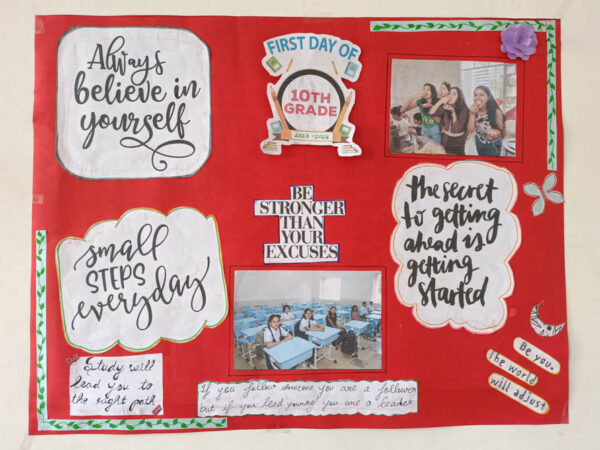 Always
believe in
yourself
FIRST DAY OF
10TH
GRADE
2023 - 2024
BE
STRONGER
THAN
YOUR
EXCUSES
the secret
to getting
ahead is
getting
started
small
STEPS
everyday
Study will
lead you to
the right path
If you follow someone you are a follower
but if you lead yourself you are a leader
Be you.
The world
will adjust